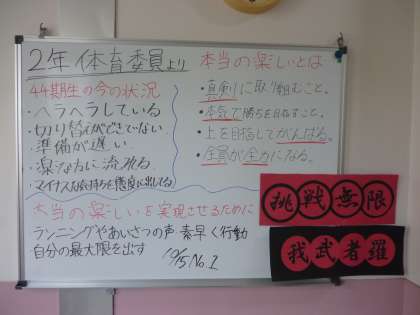 2年 体育委員より
44期生の今の状況
・ヘラヘラしている
・切り替えができていない
・準備が遅い
・楽な方に流れる
・マイナスな気持ちを態度に出してる
本当の楽しいとは
・真剣に取り組むこと。
・本気で勝ちを目指すこと。
・上を目指してがんばる。
・全員が全力になる。
本当の楽しいを実現させるために
ランニングやあいさつの声 素早く行動
自分の最大限を出す
10/15 No.1
挑戦無限
我武者羅